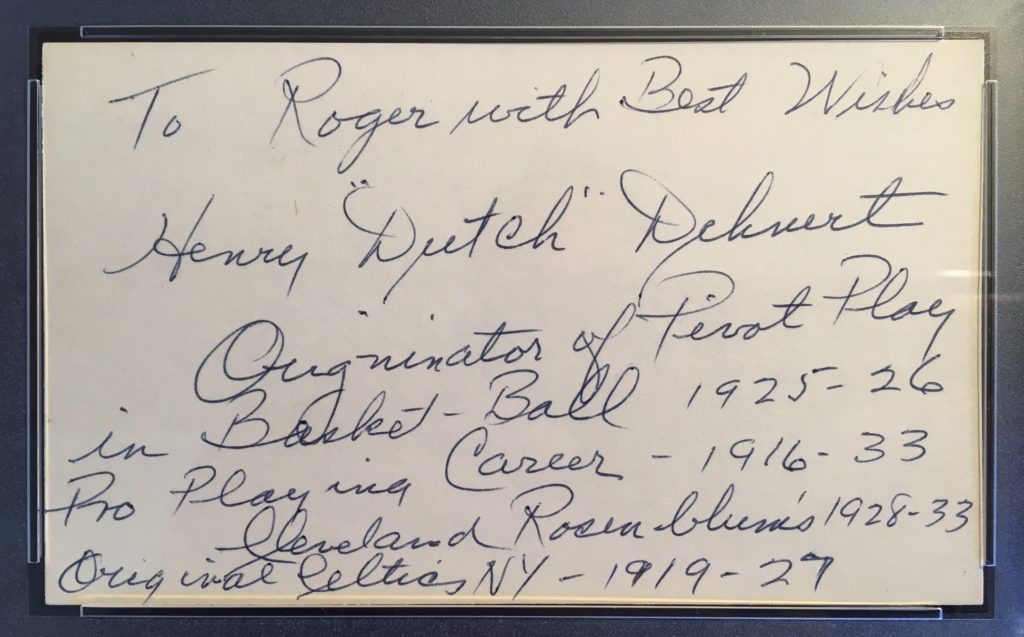 To Roger with Best Wishes
Henry "Dutch" Dehnert
Origninator of Pivot Play
in Basket-Ball 1925-26
Pro Playing Career - 1916-33
Cleveland Rosenblum's 1928-33
Original Celtics NY - 1919-27